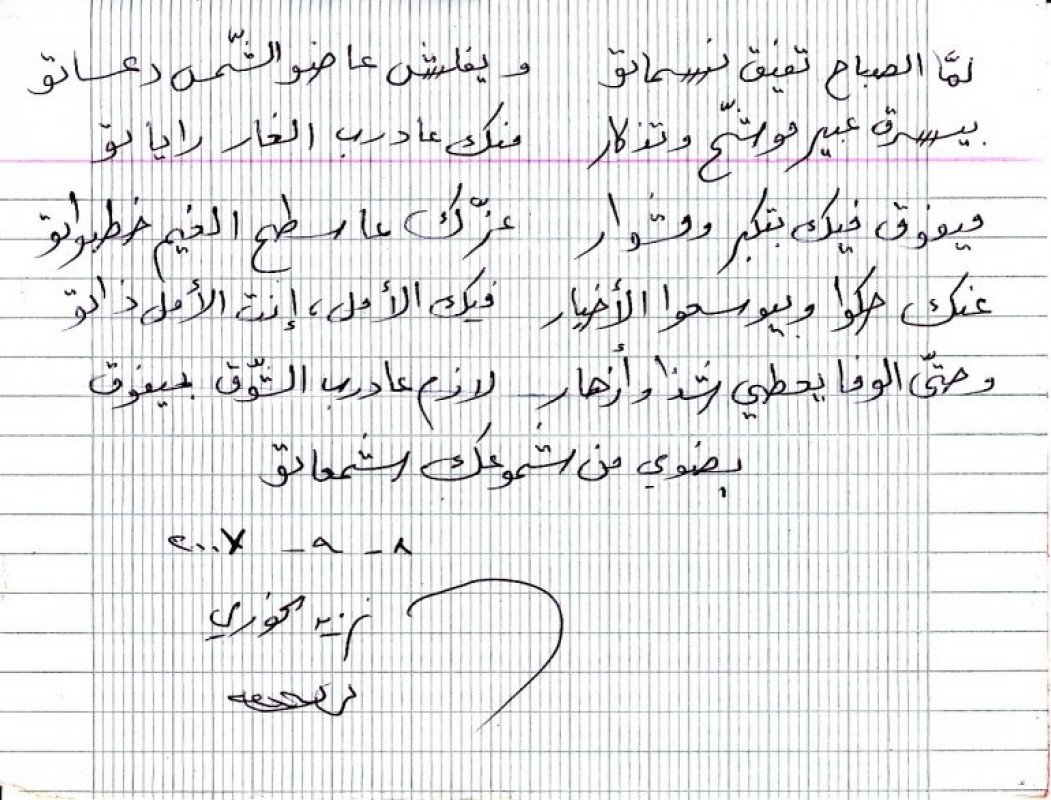 لمَّا الصباح تفيق نسماتو ويفلش عا ضو الشّمس دعساتو
بيسرق عبير موشّح وتذكار منك عا درب الغار راياتو
ميفوق فيك بتكبر ومشوار عزّك عا سطح الغيم خطواتو
عنك حكوا وبيوسعوا الأخبار فيك الأمل، إنت الأمل ذاتو
وحتّى الوفا يعطي شذا وأزهار لازم عا درب الشّوق ميفوق
يضوي من شموعك شمعاتو
٨ - ٩ - ٢٠٠٧
نزيه الخوري